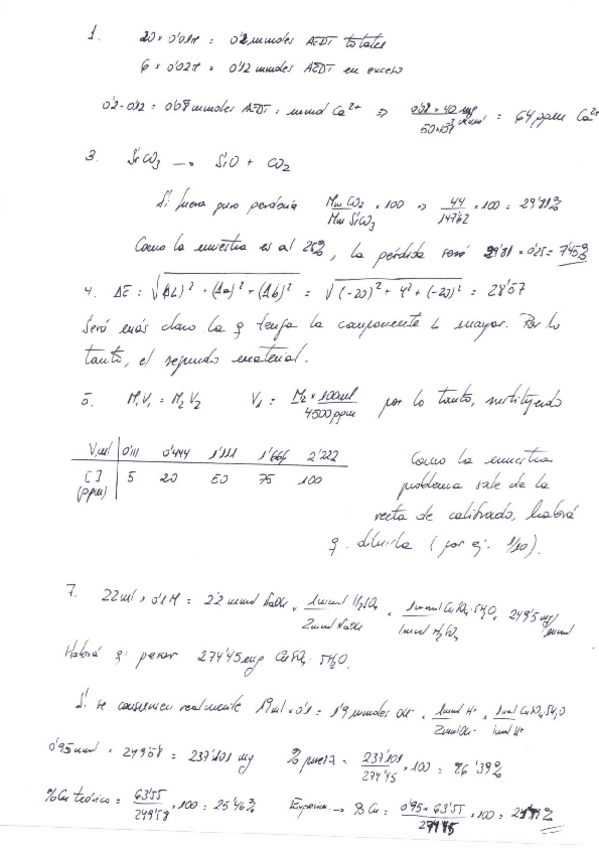 1. 20 × 0'01M = 0'2 mmoles AEDT totales
6 × 0'02M = 0'12 mmoles AEDT en exceso
0'2-0'12 = 0'08 mmoles AEDT = mmol Ca²⁺ ⇒ 0'08 × 40 mg/mmol / 50×10⁻³ = 64 ppm Ca²⁺
3. SrCO₃ → SrO + CO₂
Si fuera puro perdería Mm CO₂ / Mm SrCO₃ × 100 ⇒ 44 / 147'62 × 100 = 29'81%
Como la muestra es al 25%, la pérdida será 29'81 × 0'25 = 7'45%
4. ΔE = √(ΔL)² + (Δa)² + (Δb)² = √(-20)² + 4² + (-20)² = 28'57
Será más claro la q tenga la componente L mayor. Por lo
tanto, el segundo material.
5. M₁V₁ = M₂V₂ V₁ = M₂ × 100ml / 4500ppm por lo tanto, sustituyendo
V,ml 0'111 0'444 1'111 1'666 2'222
[ ] (ppm) 5 20 50 75 100
Como la muestra
problema sale de la
recta de calibrado, habrá
q. diluirla (por ej. 1/10).
7. 22ml × 0'1M = 2'2 mmol NaOH × 1mmol H₂SO₄ / 2mmol NaOH × 1mmol CuSO₄·5H₂O / 1mmol H₂SO₄ × 249'5 mg/mmol
Habrá q pesar 274'45mg CuSO₄·5H₂O.
Si se consumen realmente 19ml × 0'1 = 1'9 mmoles OH⁻ ×
0'95 mmol × 249'58 = 237'101 mg % pureza = 237'101 / 274'45 × 100 = 86'39%
%Cu teórico = 63'55 / 249'58 × 100 = 25'46% Experim. → % Cu = 0'95 × 63'55 / 274'45 × 100 =